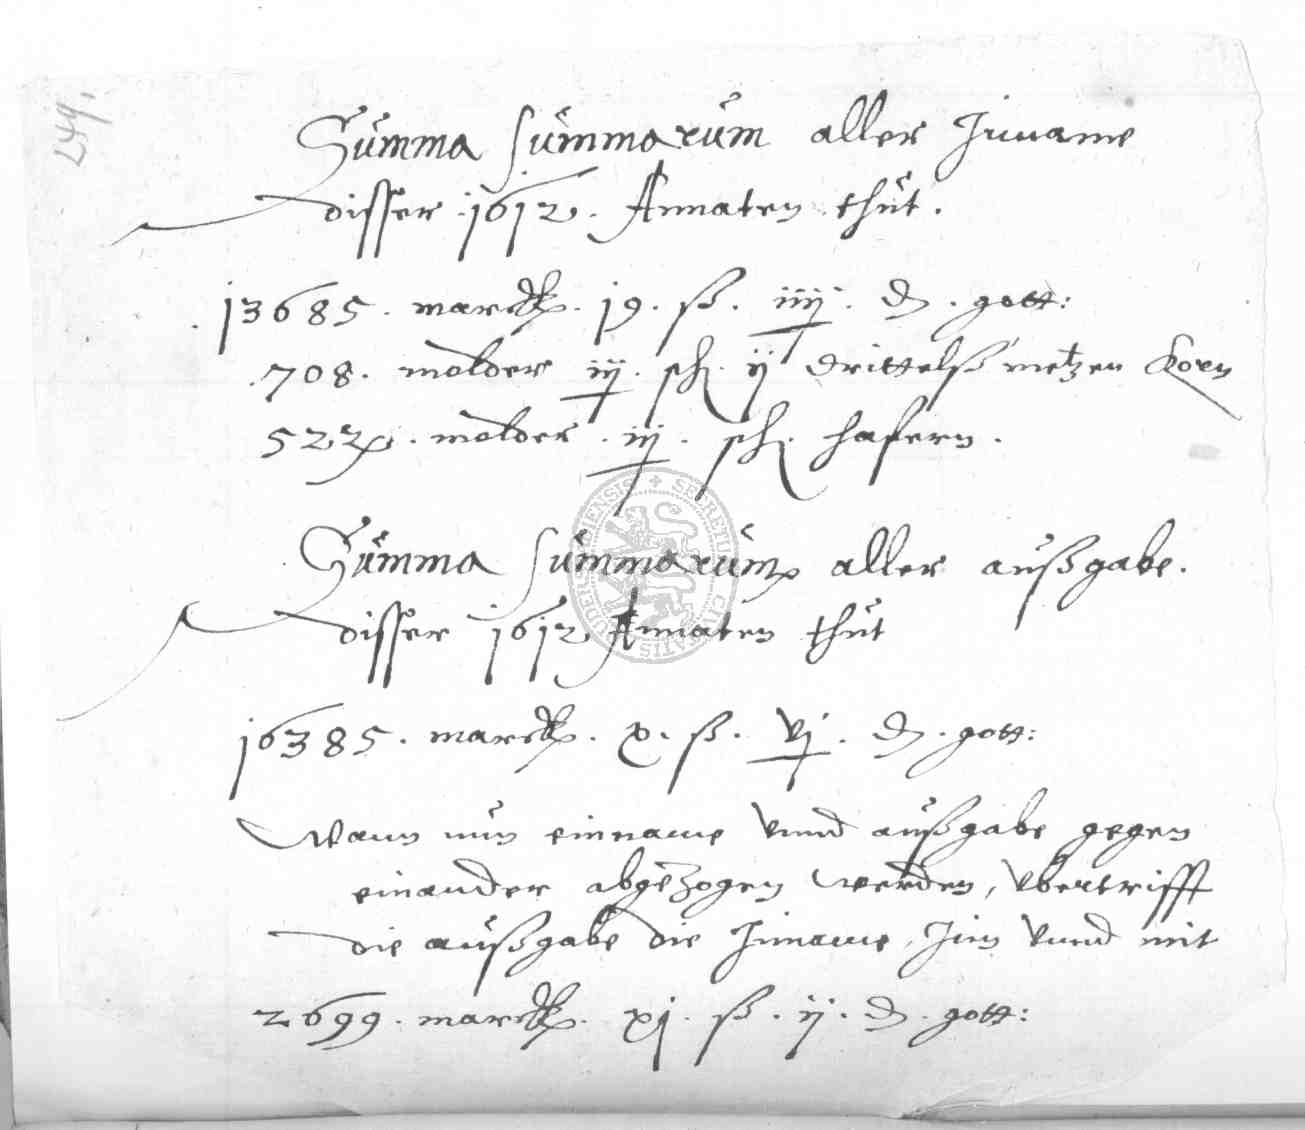 249.
Summa summarum aller Inname
disser .1612. Annaten thut.
13685. marck. 19. ß. iiij. ₰. gott:
.708. molder iij. sch. ij drittelß metzen Korn
522. molder. iij. sch. hafern.
Summa summarum aller außgabe.
disser 1612 Annaten thut
16385. marck. x. ß. vj. ₰. gott:
Wann nun einname vnnd außgabe gegen
einander abgezogen werden, vbertrifft
die außgabe die Inname, Inn vnnd mit
2699. marck. xj. ß. ij. ₰. gott:
SECRETUM CIVITATIS